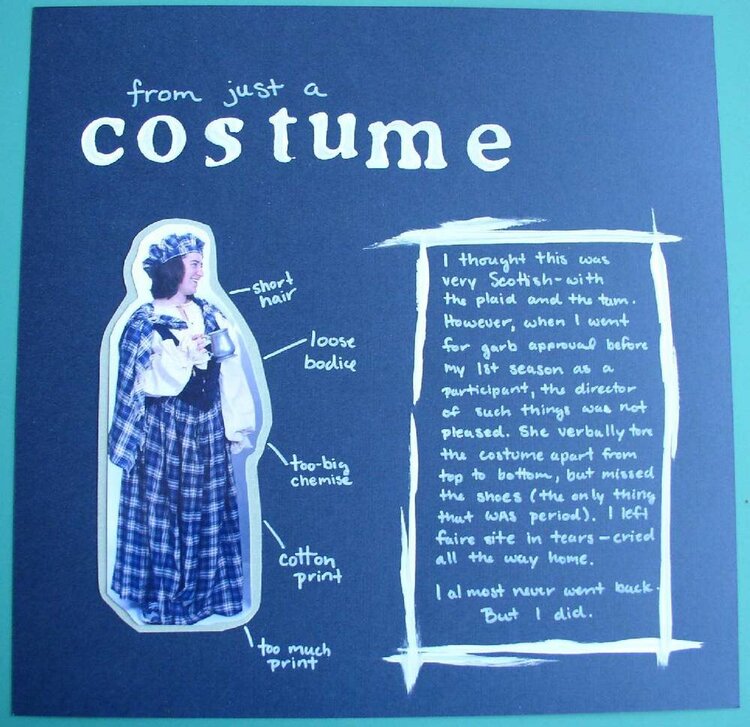 from just a
costume
short
hair
loose
bodice
too-big
chemise
cotton
print
too much
print
I thought this was
very Scottish-with
the plaid and the tam.
However, when I went
for garb approval before
my 1st season as a
participant, the director
of such things was not
pleased. She verbally tore
the costume apart from
top to bottom, but missed
the shoes (the only thing
that WAS period). I left
faire site in tears-cried
all the way home.
I almost never went back.
But I did.